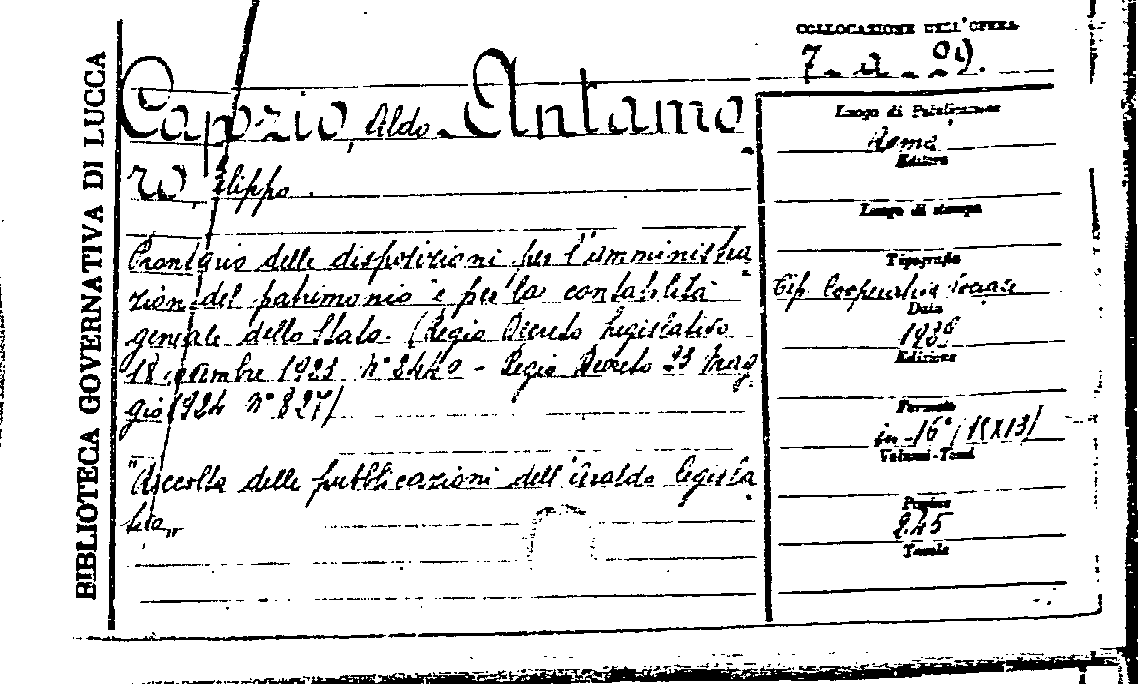 BIBLIOTECA GOVERNATIVA DI LUCCA
COLLOCAZIONE DELL'OPERA
7. a. 99.
Capozio, Aldo. Antamo
W. Filippo.
Prontuario delle disposizioni per l'amministra
zion del patrimonio e per la contabilità
generale dello Stato. (Regio Decreto legislativo
18 novembre 1923 N° 2440 - Regio Decreto 23 Mag
gio 1924 N° 827)
"Raccolta delle pubblicazioni dell'Araldo legisla
tivo„
Luogo di Pubblicazione
Roma
Editore
Luogo di stampa
Tipografia
Tip. Cooperativa Sociale
Data
1926
Edizione
Formato
in-16° (18X13)
Volumi-Tomi
Pagine
245
Tavole